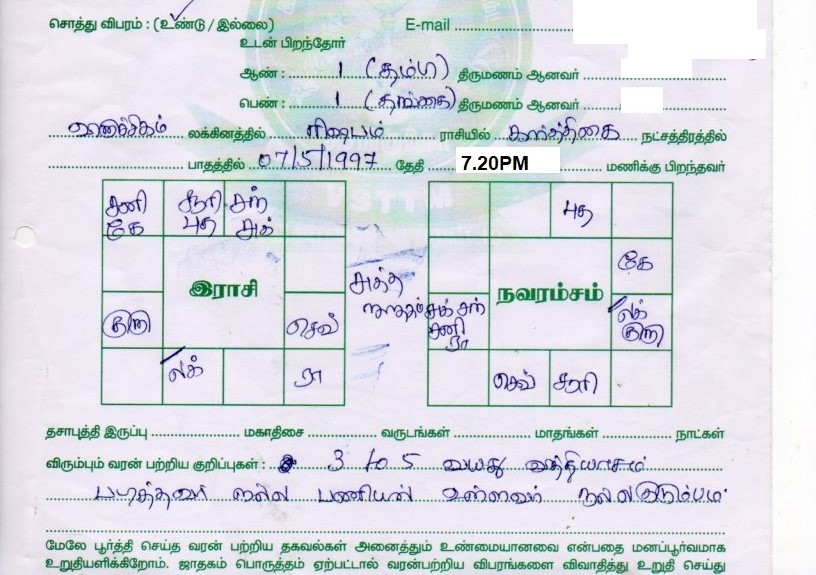 சொத்து விபரம் : (உண்டு / இல்லை) E-mail
உடன் பிறந்தோர்
ஆண் : 1 (தம்பி) திருமணம் ஆனவர்
பெண் : 1 (தங்கை) திருமணம் ஆனவர்
லக்கினத்தில் ரிஷபம் ராசியில் கார்த்திகை நட்சத்திரத்தில்
பாதத்தில் 07/5/1997 தேதி 7.20PM மணிக்கு பிறந்தவர்
சனி சூரி சந் புத
கே புத சுக்
கே
இராசி நவரம்சம்
லக்
குரு செவ் சுக் சந் குரு
சனி
ரா
லக் ரா செவ் சூரி
தசாபுத்தி இருப்பு மகாதிசை வருடங்கள் மாதங்கள் நாட்கள்
விரும்பும் வரன் பற்றிய குறிப்புகள் : 3 to 5 வயது வித்தியாசம்
நல்ல பணியில் உள்ளவர் நல்ல குடும்பம்
மேலே பூர்த்தி செய்த வரன் பற்றிய தகவல்கள் அனைத்தும் உண்மையானவை என்பதை மனப்பூர்வமாக
உறுதியளிக்கிறோம். ஜாதகம் பொருத்தம் ஏற்பட்டால் வரன்பற்றிய விபரங்களை விவாதித்து உறுதி செய்து